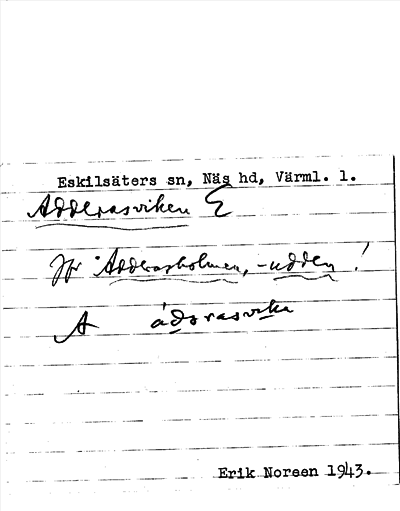 Eskilsäters sn, Näs hd, Värml. l.
Adderasviken
Jfr Adderasholmen, -udden!
A ádərasvika
Erik Noreen 1943.